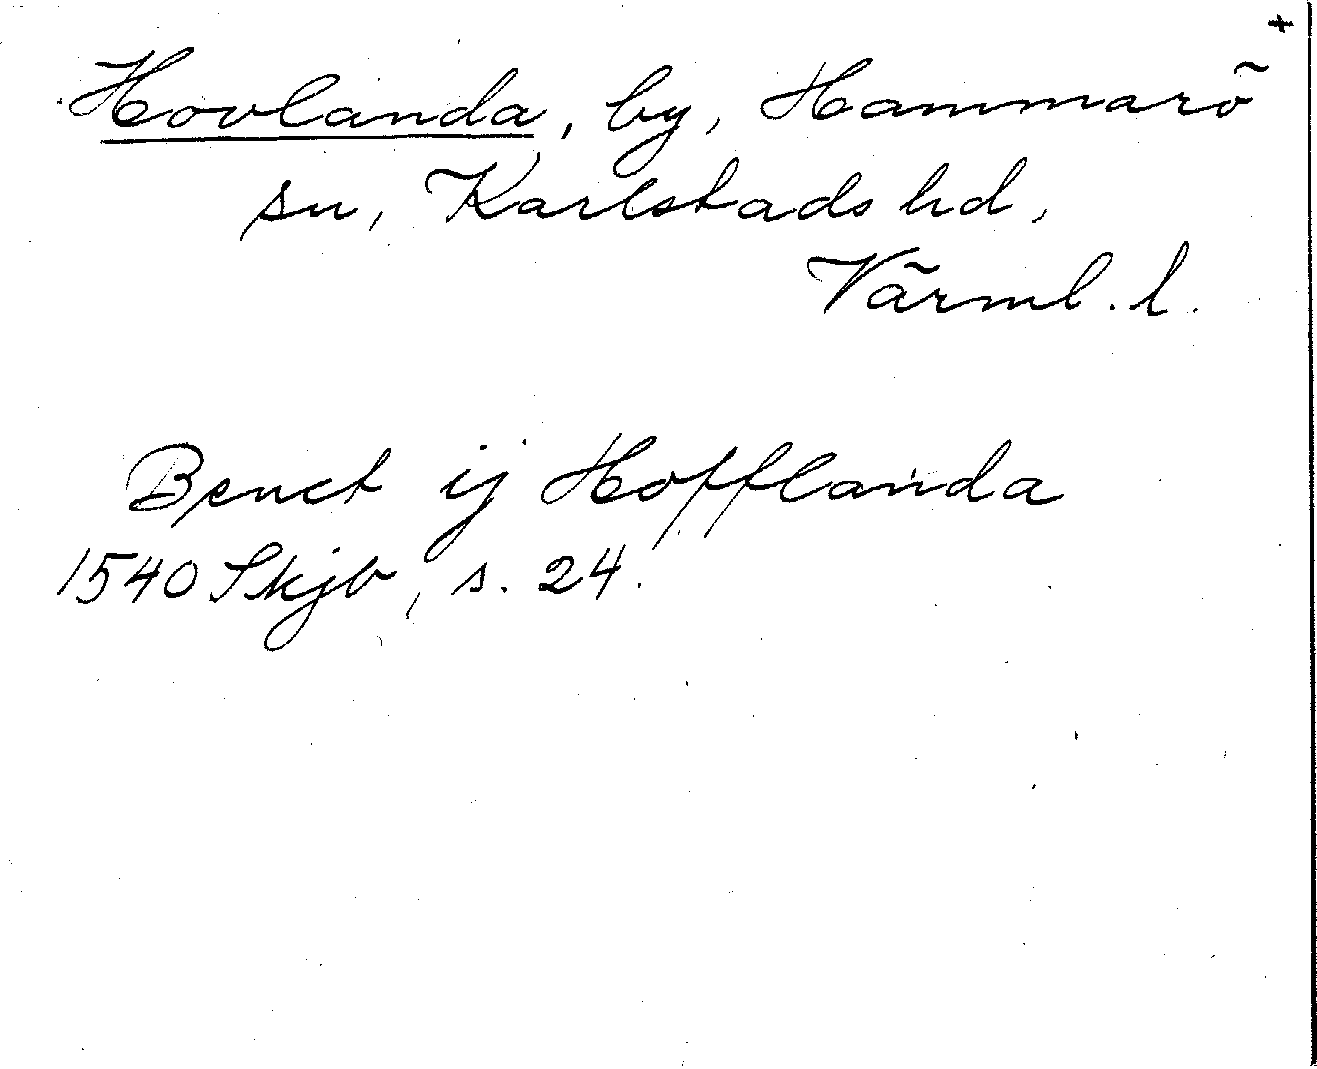 +
Hovlanda, by, Hammarö
sn, Karlstads hd,
Värml. l.
Benct ij Hofflanda
1540 Skjb, s. 24.